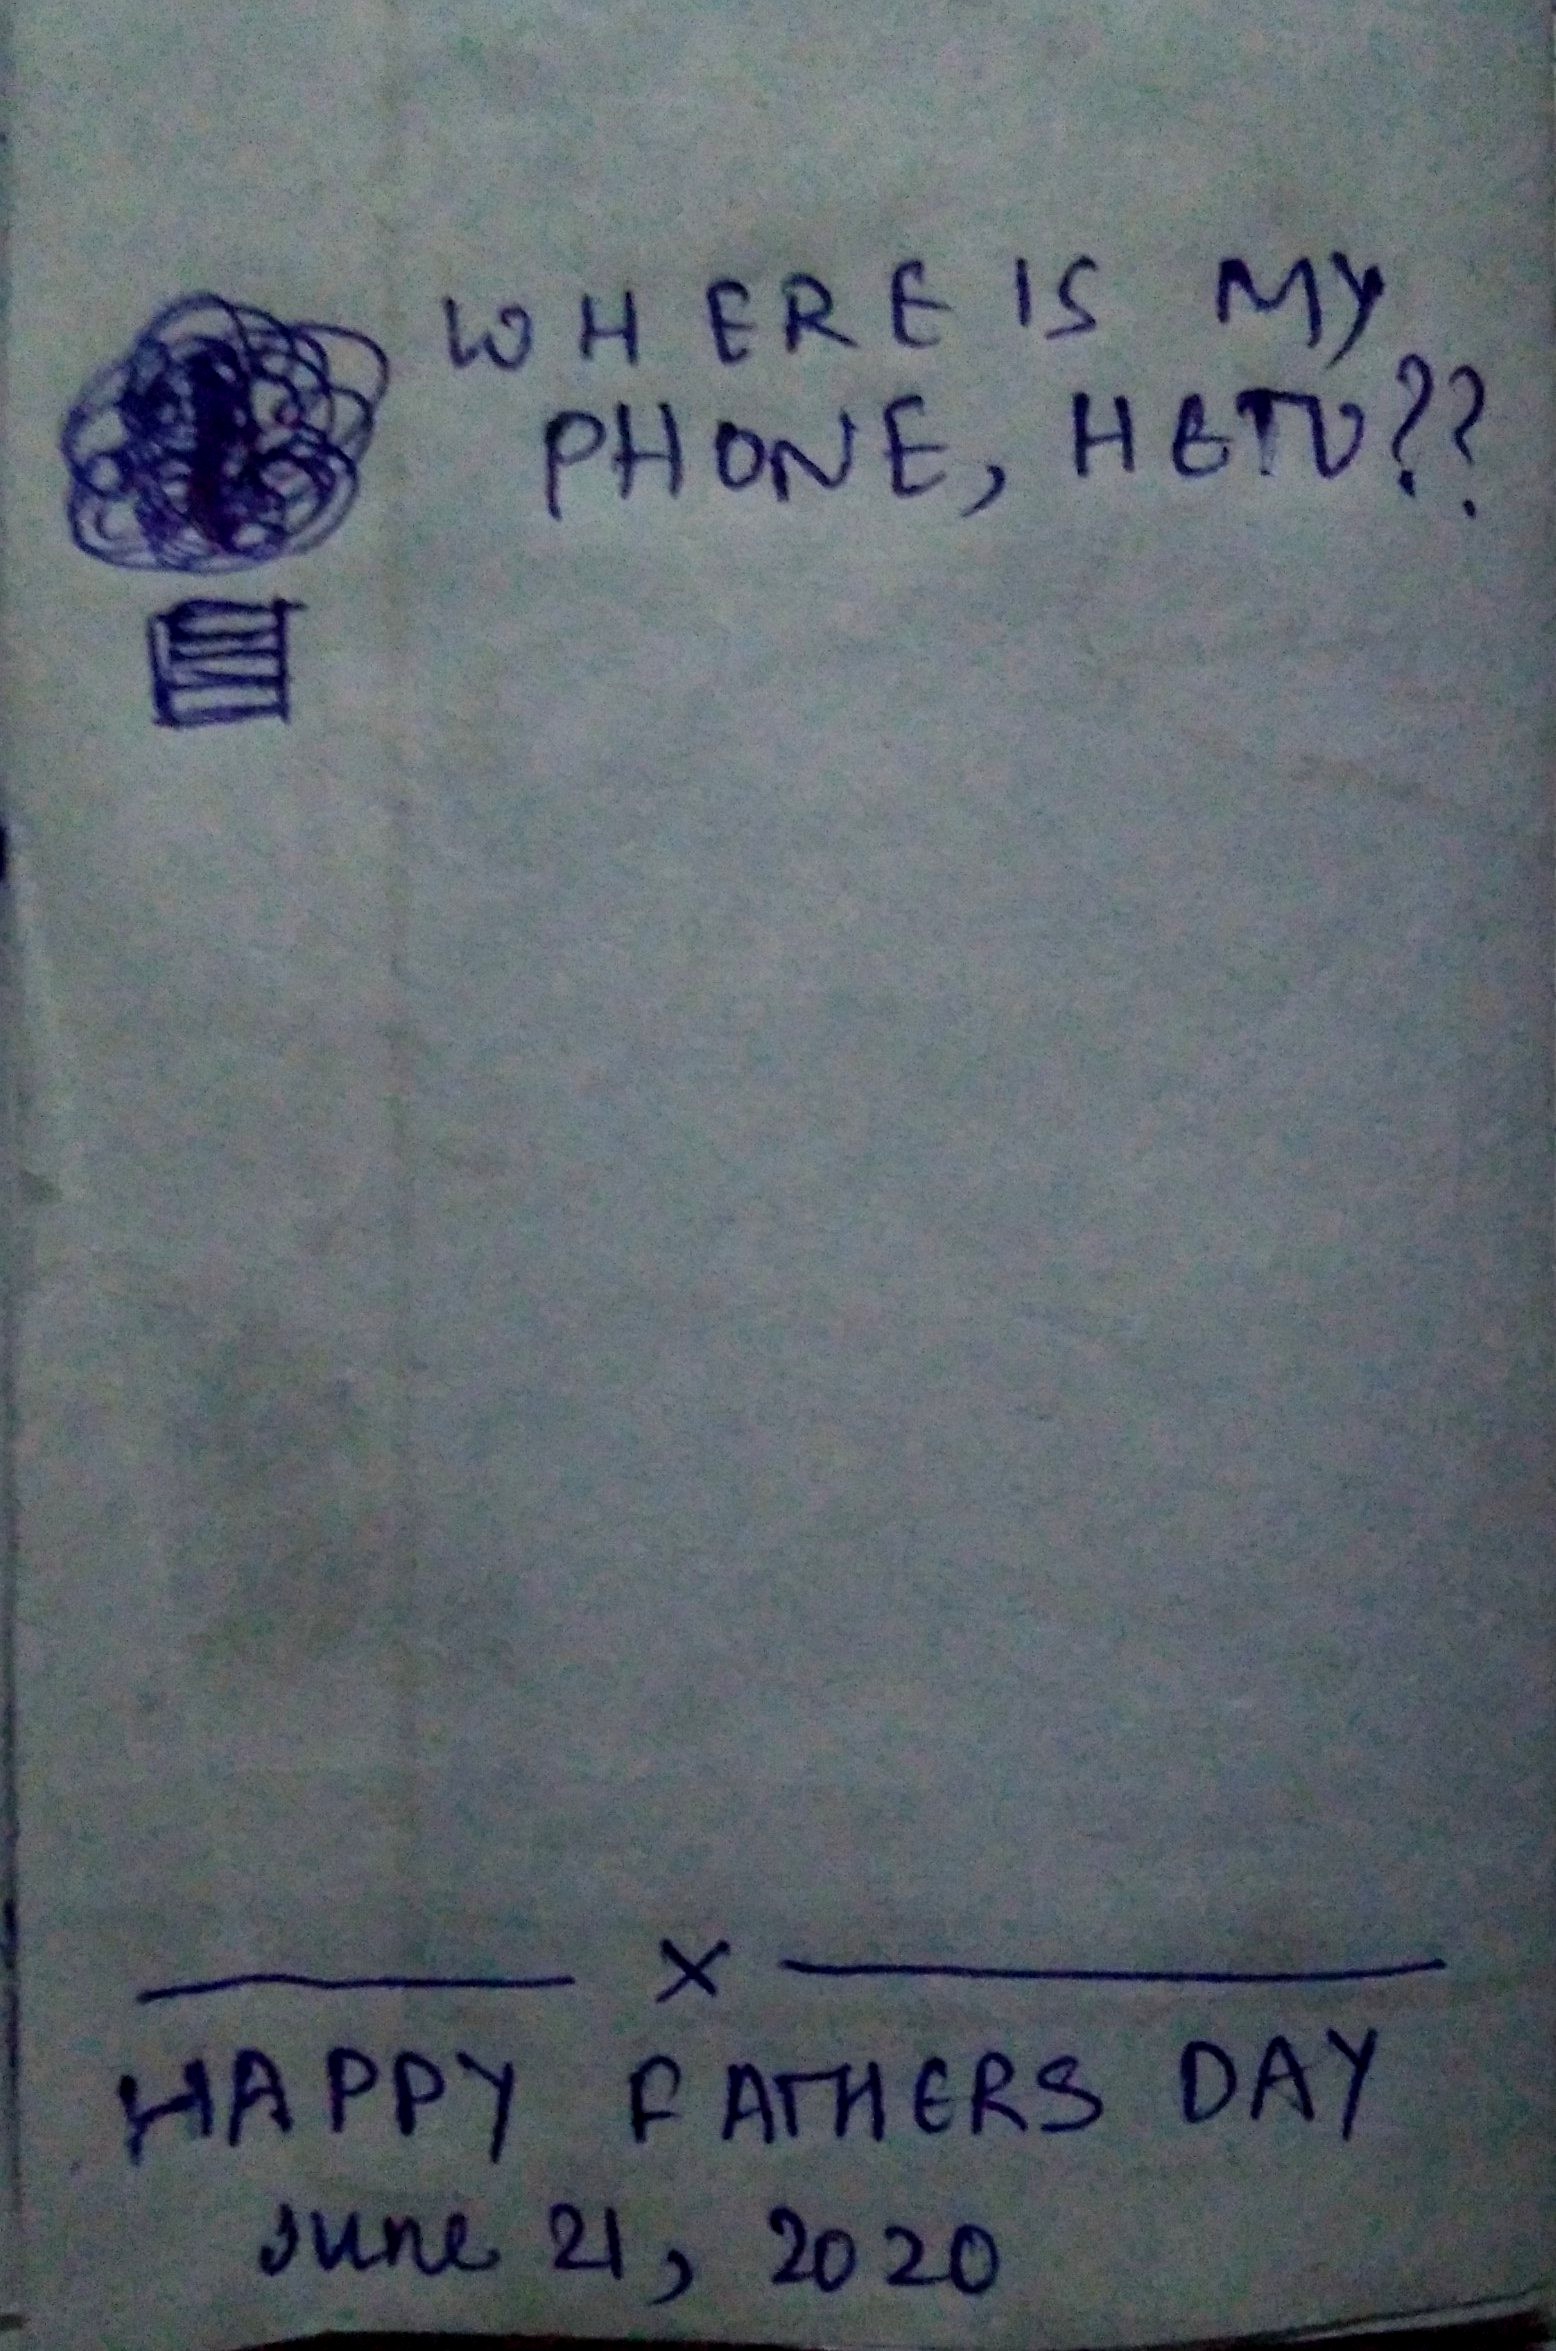 WHERE IS MY
PHONE, HETU??
x
HAPPY FATHERS DAY
June 21, 2020